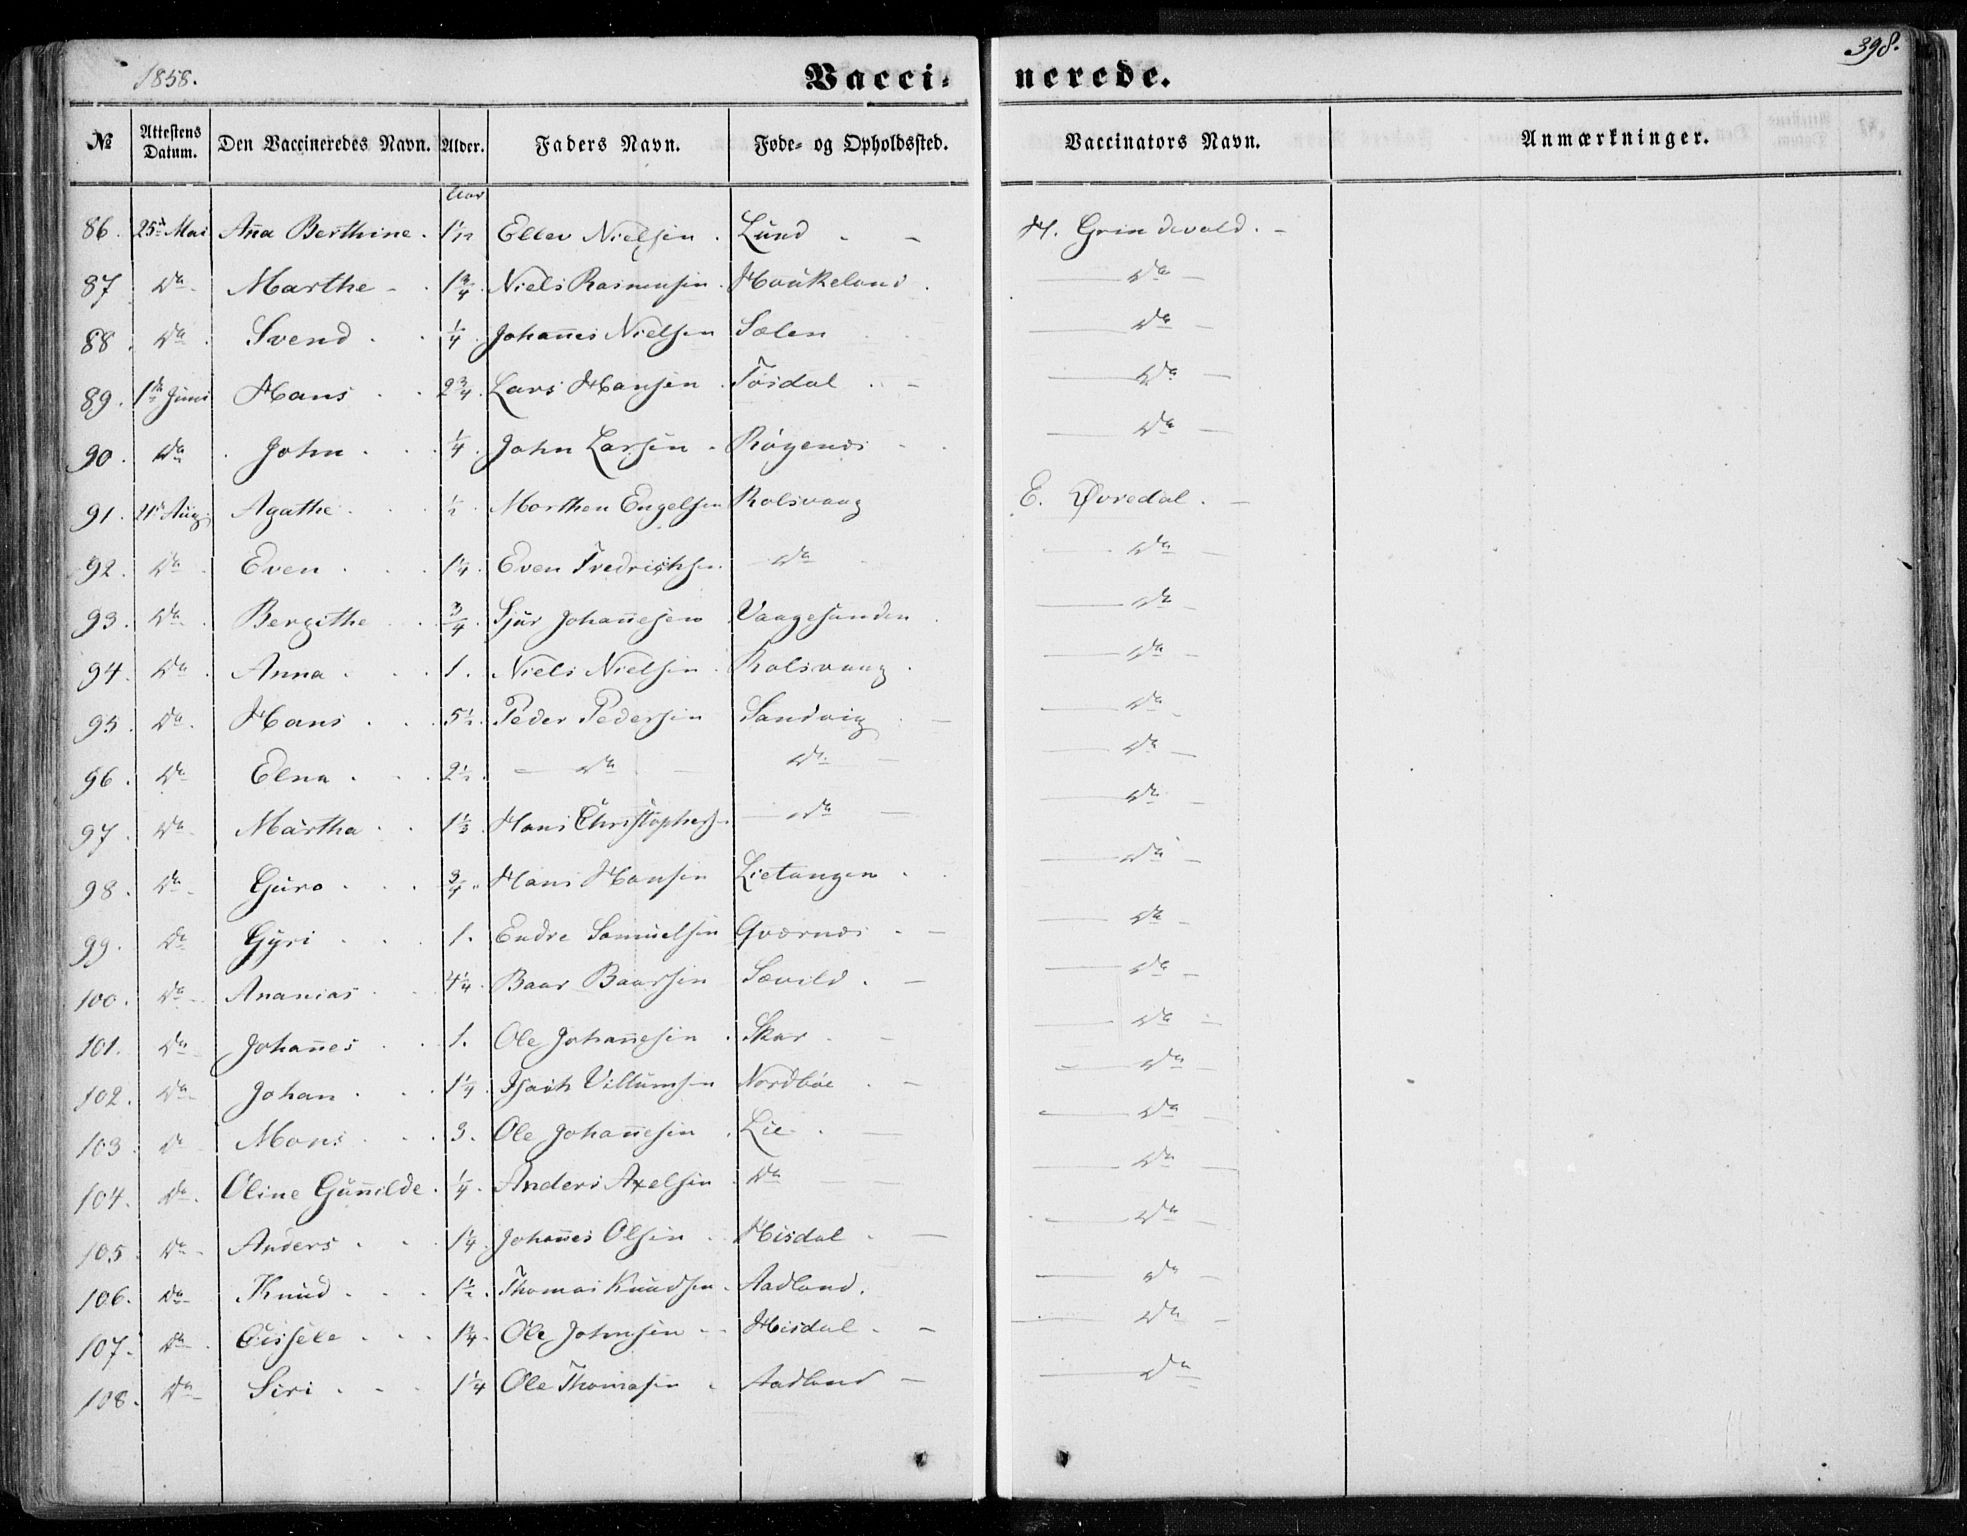 1858.
Vacci- nerede.
398.
№ Attestens Datum. Den Vaccineredes Navn. Alder. Faders Navn. Føde- og Opholdssted. Vaccinators Navn. Anmærkninger.
Aar
86. 25de Mai Añna Berthine. 1 1/12 Ellev Nielsen. Lund H. Grindevald.
87 Do Marthe 1 3/4 Niels Rasmussen. Houkeland. Do
88. Do Svend 1/4. Johan̄es Nielsen Sælen Do
89. 1ste Juni Hans 2 3/4. Lars Hansen. Tøsdal Do
90. Do John 1/4. John Larsen Røgenæs Do
91. 21de Aug. Agathe 1/2. Morthen Engelsen Rolsvaag E. Øvredal.
92. Do Even 1 1/4. Even Fredrichsen Do Do
93. Do Bergithe 3/4. Sjur Johan̄esen Vaagesunden Do
94. Do Anna 1. Niels Nielsen. Rolsvaag. Do
95. Do Hans 5 1/2. Peder Pedersen Sandvig Do
96. Do Elna 2 1/2. Do Do Do
97. Do Martha 1 1/3. Hans Christophers. Do Do
98. Do Guro 3/4. Hans Hansen Lietangen Do
99. Do Gyri 1. Endre Samuelsen Qværnæs Do
100. Do Ananias 4 1/4. Baar Baarsen Sævild. Do
101. Do Johan̄es 1. Ole Johan̄esen Skar Do
102. Do Johan 1 1/4. Isach Villumsen Nordbøe Do
103 Do Mons 3. Ole Johan̄esen Lie Do
104. Do Oline Gun̄ilde. 1/4. Anders Axelsen Do Do
105. Do Anders 1 1/4. Johan̄es Olsen Hisdal Do
106. Do Knud 1 1/2. Thomas Knudsen. Aadland. Do
107. Do Gissele 1 3/4. Ole Johnsen Hisdal Do
108. Do Siri 1 1/4 Ole Thomasen Aadland Do